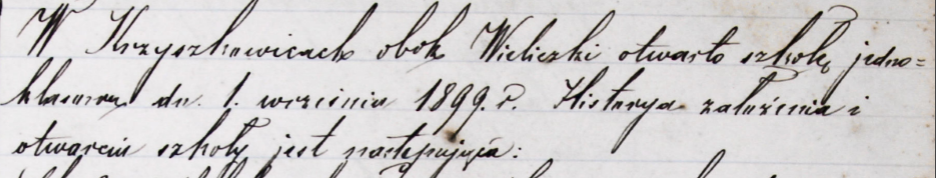 W Krzyszkowicach obok Wieliczki otwarto szkołę jedno=
klasową dn. 1. września 1899. r. Historya założenia i
otwarcia szkoły jest następująca: